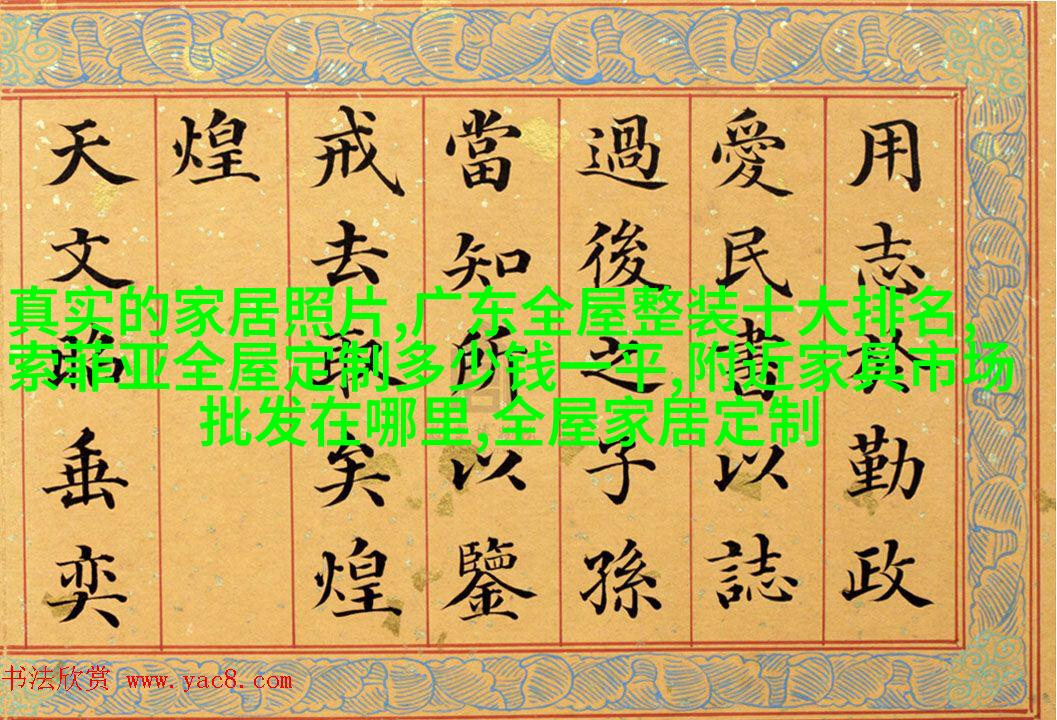 用志勤政
愛民書以誌
過後之子孫
當知所以鑒
戒去取矣煌
煌
天文昭垂奕
真实的家居照片,广东全屋整装十大排名,
索菲亚全屋定制多少钱一平,附近家具市场
批发在哪里,全屋家居定制
书法欣赏 www.yac8.com